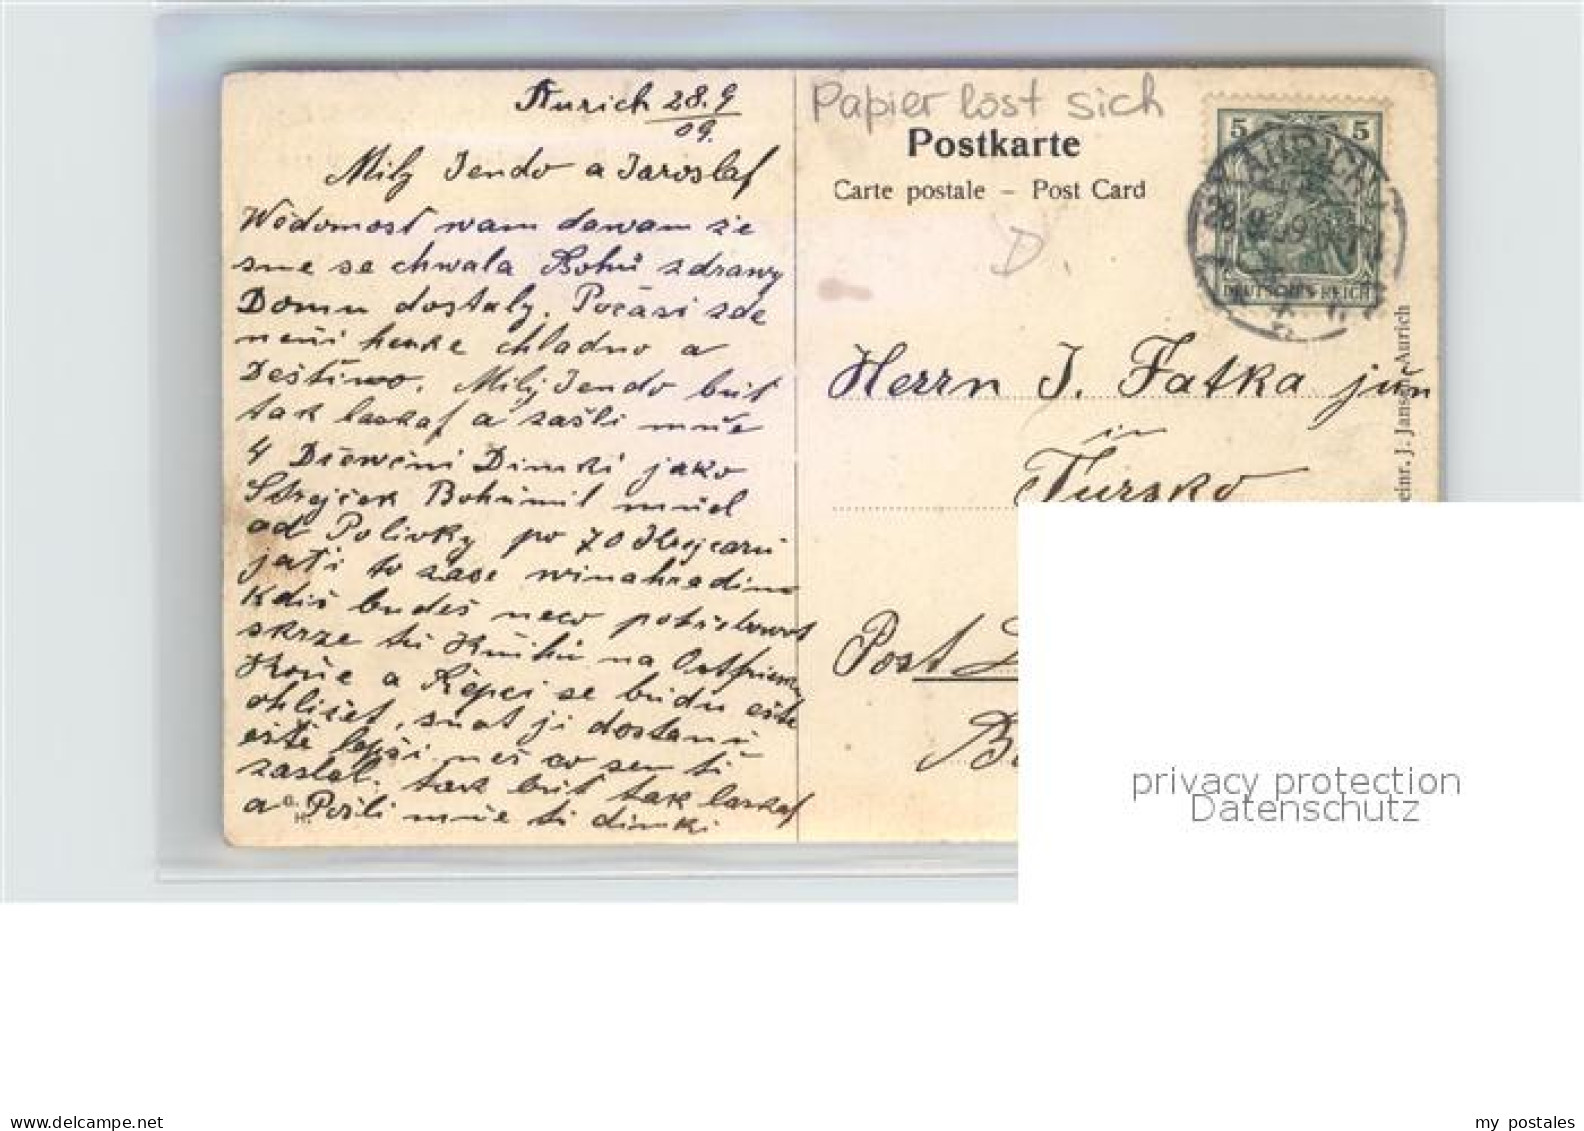 Aurich 28.9
09.
Milý Jendo a Jaroslaf
Wědomost wam dawam že
sme se chwala Bohu zdrawy
Domu dostaly. Počasi zde
neni heske chladno a
Deštiwo. Milý Jendo buť
tak laskaf a zašli mňe
4 Dřewěni Dimki jako
Strejček Bohumil mňel
od Poliwky po 70 Krejcaru
jať ti to zase winahradim
Kdiš budeš neco potřebowat
skrze tu Knihu na Ostfrieské
Koňe a Řepci se budu eště
ohližet, snat ji dostanu
eště lepši neš co sem ti
zaslal. tak buť tak laskaf
a Pošli mňe ti dimki
G.
H.
Papier löst sich
Postkarte
Carte postale – Post Card
D.
5 5
AURICH
28.9.09
DEUTSCHES REICH
Herrn J. Fatka jun
in
Tursko
Post
J. Jansen, Aurich
privacy protection
Datenschutz
www.delcampe.net
my_postales